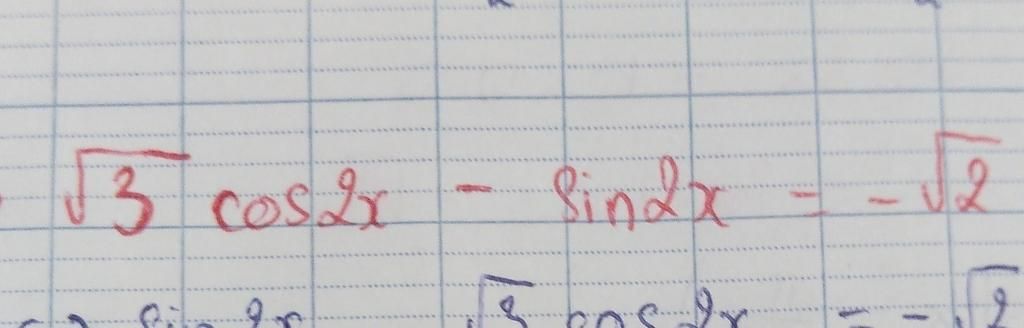 √3 cos2x - sin2x = -√2
√3 cos 2x = -√2